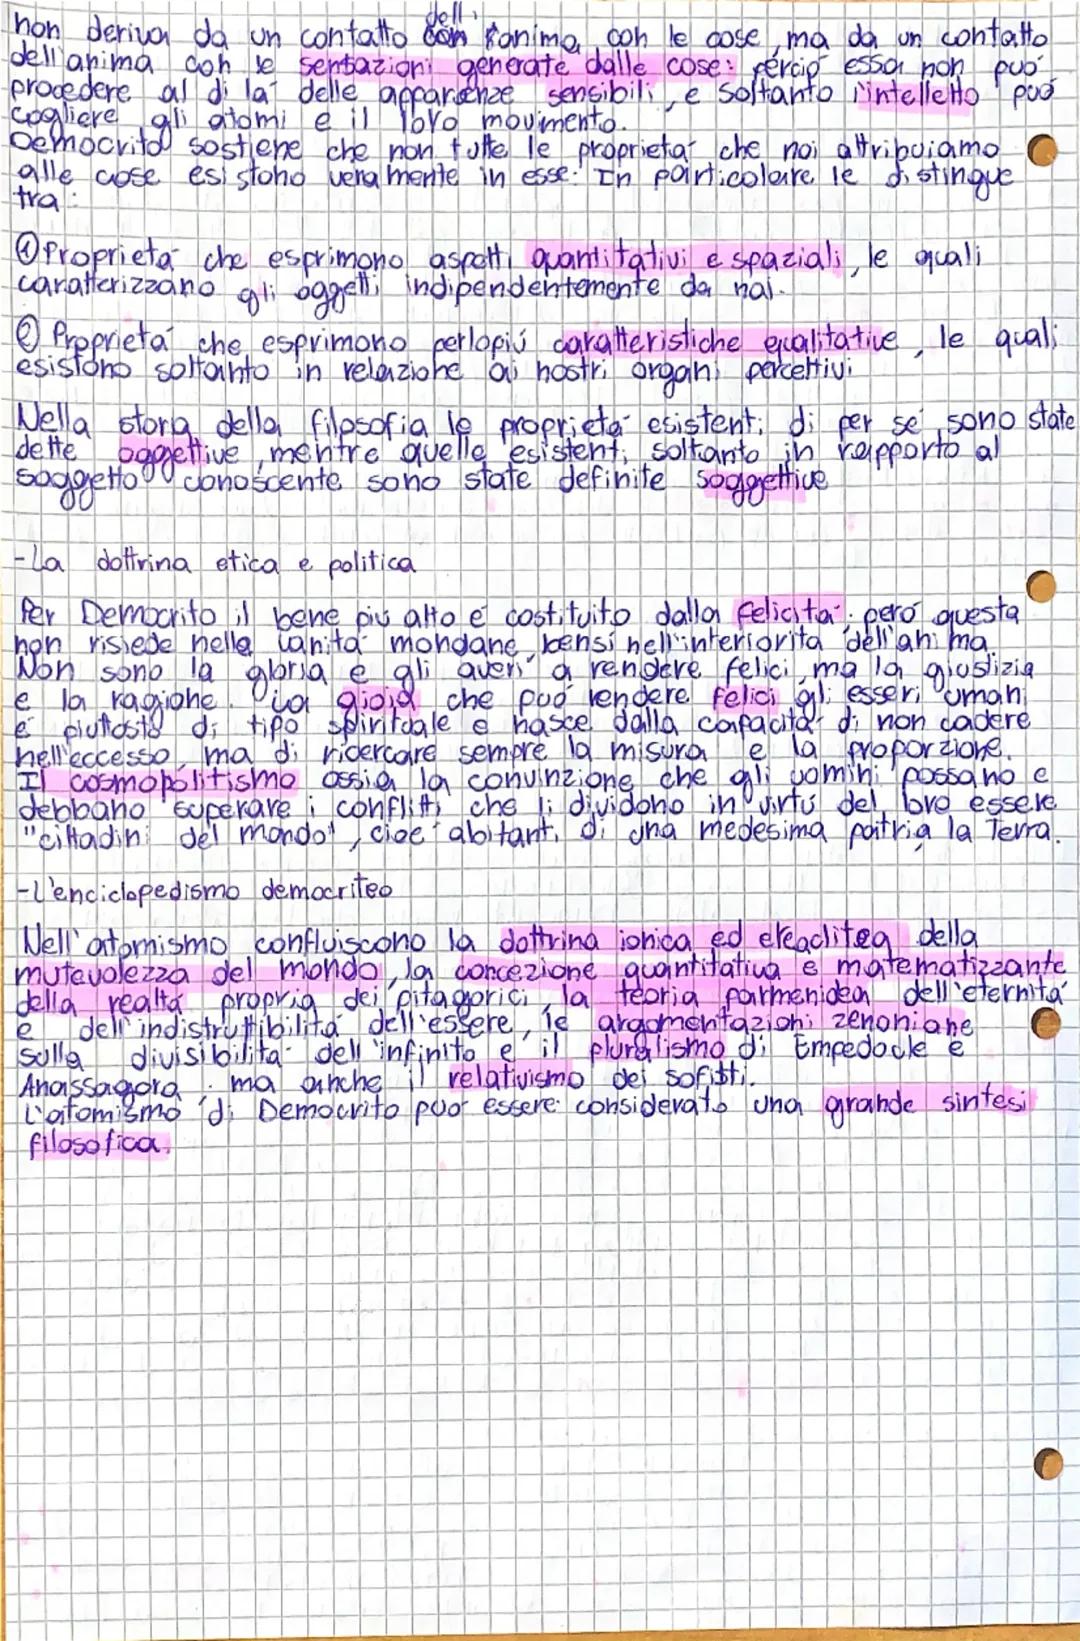 non deriva da un contatto dell'anima con le cose, ma da un contatto
dell'anima con le sensazioni generate dalle cose: perciò essa non può
procedere al di là delle apparenze sensibili, e soltanto l'intelletto può
cogliere gli atomi e il loro movimento.
Democrito sostiene che non tutte le proprietà che noi attribuiamo
alle cose esistono veramente in esse. In particolare le distingue
tra:
① Proprietà che esprimono aspetti quantitativi e spaziali, le quali
caratterizzano gli oggetti indipendentemente da noi.
② Proprietà che esprimono perlopiù caratteristiche qualitative, le quali
esistono soltanto in relazione ai nostri organi percettivi
Nella storia della filosofia le proprietà esistenti di per sé sono state
dette oggettive, mentre quelle esistenti soltanto in rapporto al
soggetto conoscente sono state definite soggettive
-La dottrina etica e politica
Per Democrito il bene più alto è costituito dalla felicità: però questa
non risiede nelle vanità mondane, bensì nell'interiorità dell'anima.
Non sono la gloria e gli averi a rendere felici, ma la giustizia
e la ragione. La gioia che può rendere felici gli esseri umani
è piuttosto di tipo spirituale e nasce dalla capacità di non cadere
nell'eccesso, ma di ricercare sempre la misura e la proporzione.
Il cosmopolitismo ossia la convinzione che gli uomini possano e
debbano superare i conflitti che li dividono in virtù del loro essere
"cittadini del mondo", cioè abitanti di una medesima patria la Terra.
-L'enciclopedismo democriteo
Nell'atomismo confluiscono la dottrina ionica ed eraclitea della
mutevolezza del mondo, la concezione quantitativa e matematizzante
della realtà propria dei pitagorici, la teoria parmenidea dell'eternità
e dell'indistruttibilità dell'essere, le argomentazioni zenoniane
sulla divisibilità dell'infinito e il pluralismo di Empedocle e
Anassagora; ma anche il relativismo dei sofisti.
L'atomismo di Democrito può essere considerato una grande sintesi
filosofica.